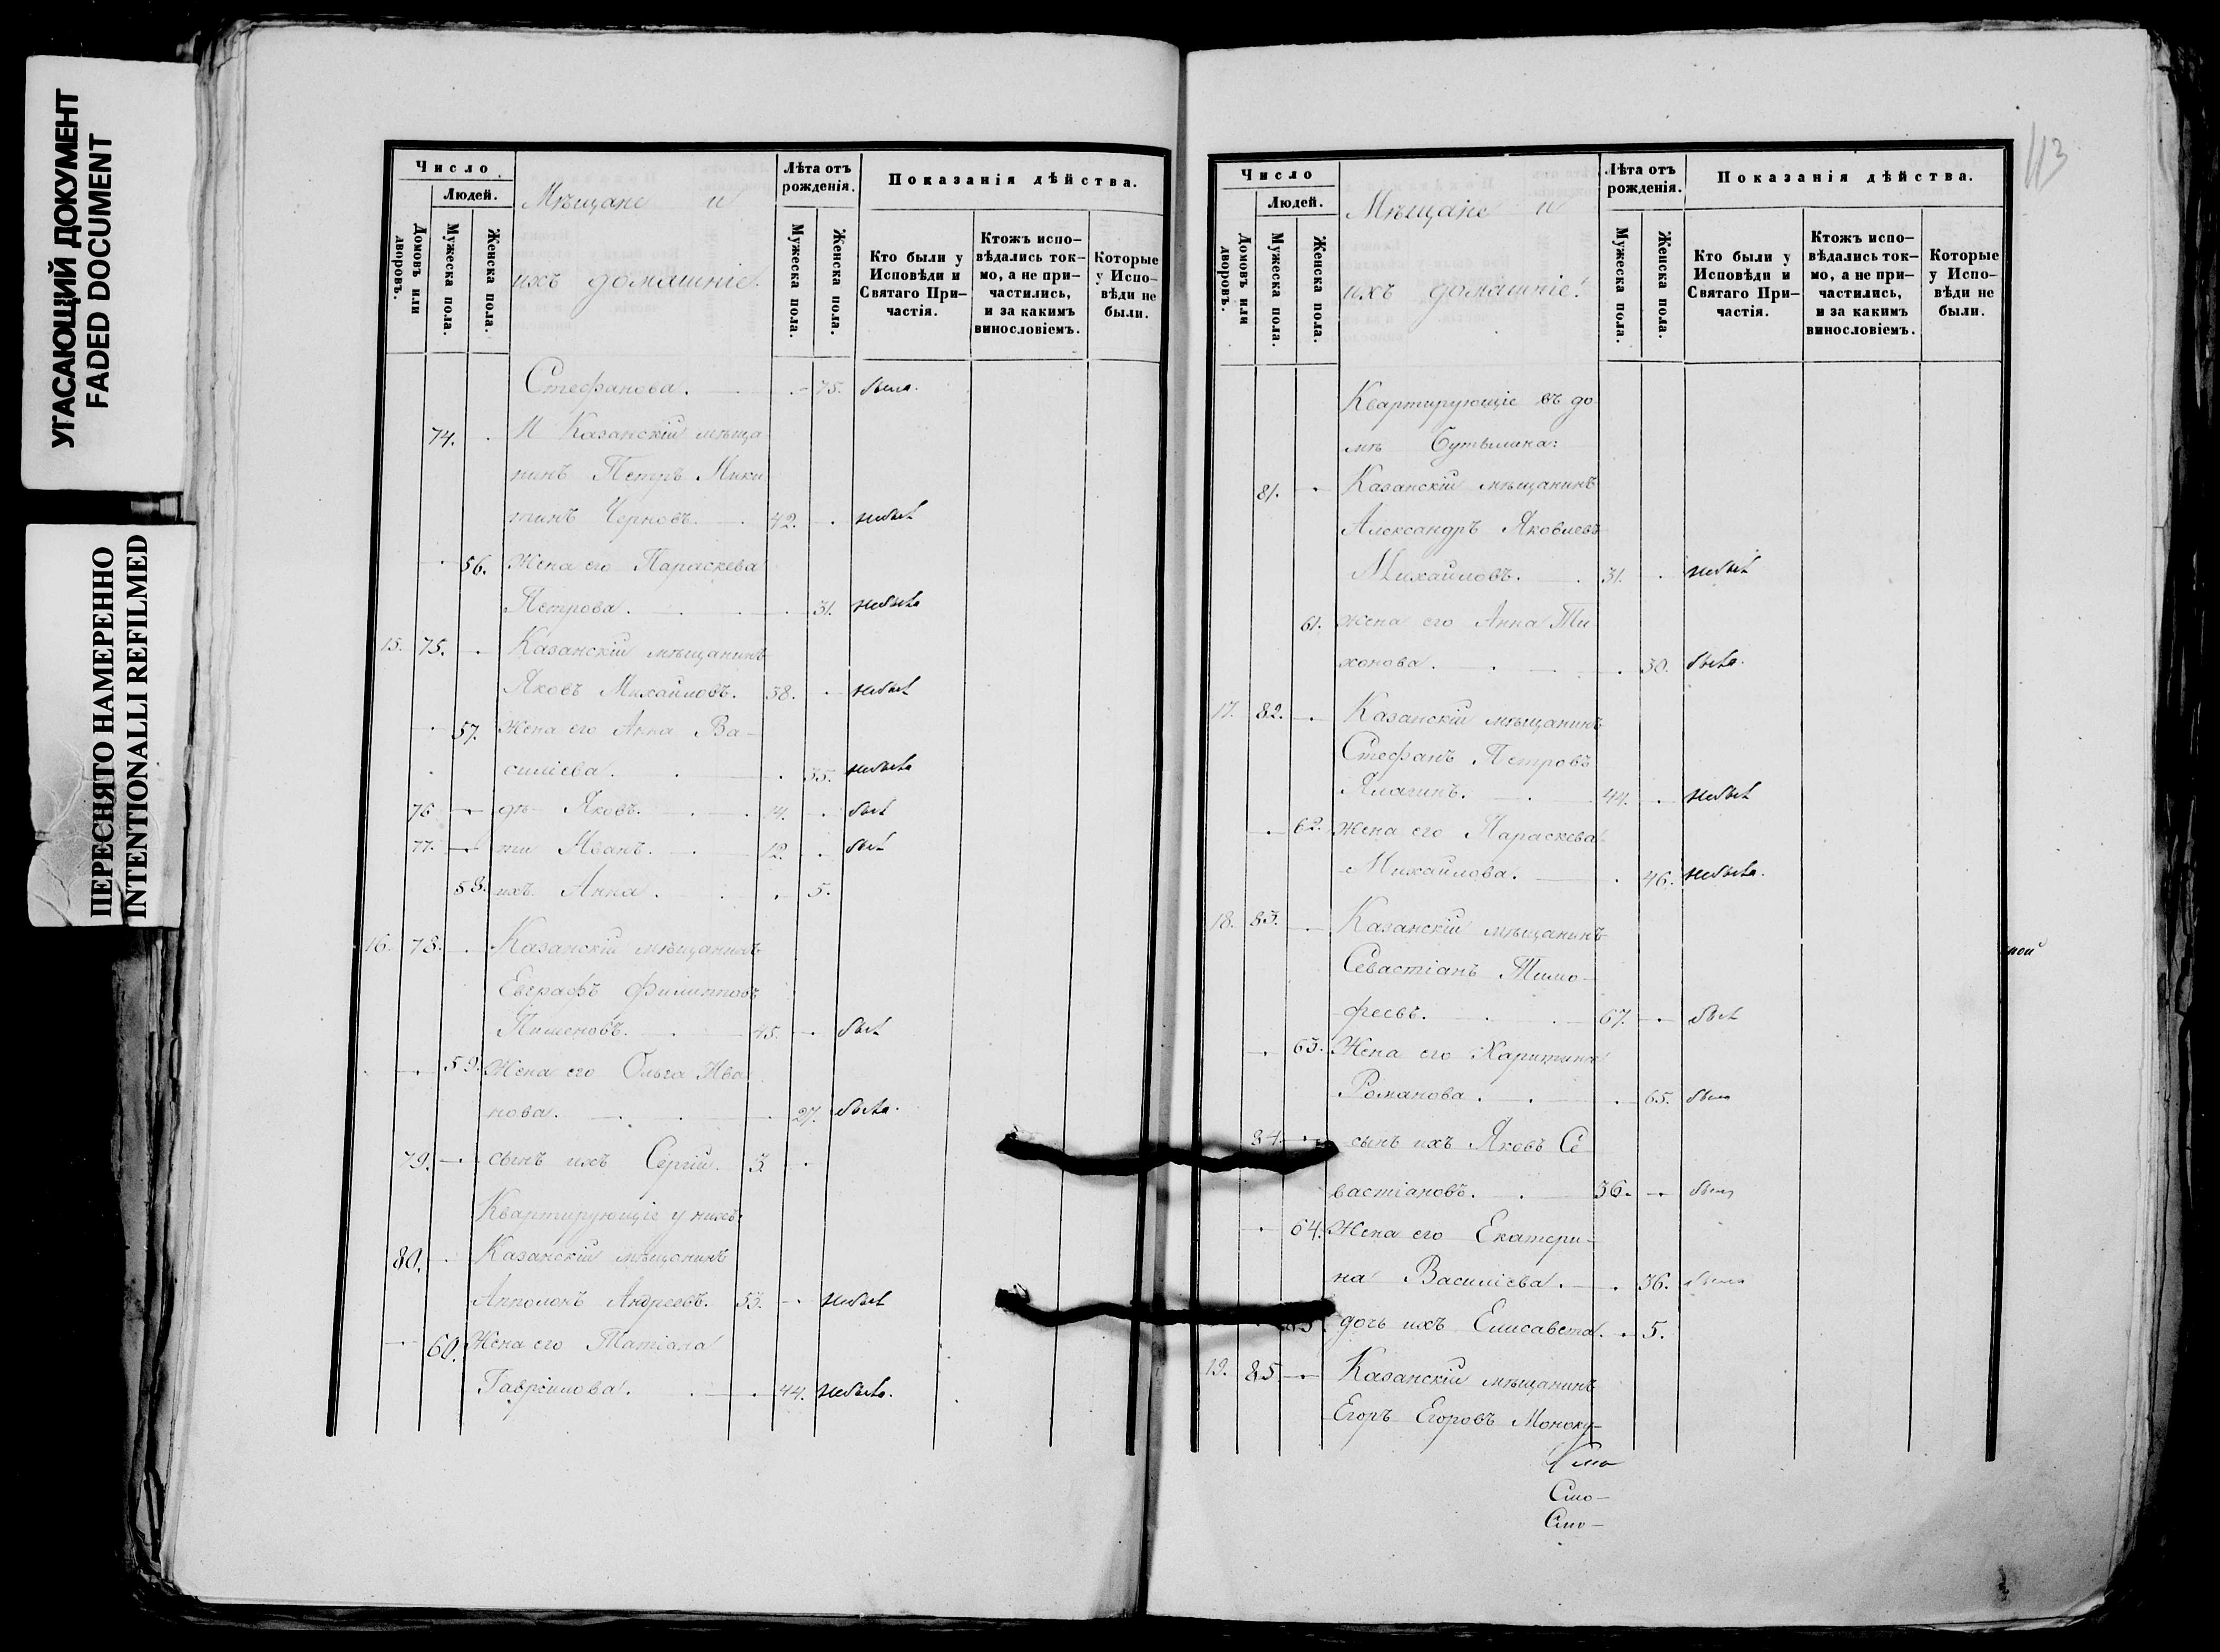 УГАСАЮЩИЙ ДОКУМЕНТ
FADED DOCUMENT
ПЕРЕСНЯТО НАМЕРЕННО
INTENTIONALLI REFILMED
Число
Людей.
Домовъ или дворовъ.
Мужеска пола.
Женска пола.
Мѣщане и
ихъ домашніе.
Лѣта отъ
рожденія.
Мужеска пола.
Женска пола.
Показанія дѣйства.
Кто были у
Исповѣди и
Святаго При-
частія.
Ктожъ испо-
вѣдались ток-
мо, а не при-
частились,
и за какимъ
винословіемъ.
Которые
у Испо-
вѣди не
были.
Стефанова. 75. была.
74. И Казанскій мѣща
нинъ Петръ Мики
тинъ Черновъ. 42. небылъ
56. Жена его Параскева
Петрова. 31. небыла
15. 75. Казанскій мѣщанинъ
Яковъ Михайловъ. 38. небылъ
57. Жена его Анна Ва-
силіева. 35. небыла
76 дѣ- Яковъ. 14. былъ
77. ти Иванъ. 12. былъ
58. ихъ Анна. 5.
16. 78. Казанскій мѣщанинъ
Евграфъ Филипповъ
Пименовъ. 45. былъ
59. Жена его Ольга Ива
нова. 27. была.
79. сынъ ихъ Сергій. 3.
Квартирующіе у нихъ:
80. Казанскій мѣщанинъ
Апполонъ Андреевъ. 53. небылъ
60. Жена его Татіана
Гавріилова. 44. небыла.
113
Число
Людей.
Домовъ или дворовъ.
Мужеска пола.
Женска пола.
Мѣщане и
ихъ домашніе.
Лѣта отъ
рожденія.
Мужеска пола.
Женска пола.
Показанія дѣйства.
Кто были у
Исповѣди и
Святаго При-
частія.
Ктожъ испо-
вѣдались ток-
мо, а не при-
частились,
и за какимъ
винословіемъ.
Которые
у Испо-
вѣди не
были.
Квартирующіе въ до
мѣ Сутылина:
81. Казанскій мѣщанинъ
Александръ Яковлевъ
Михайловъ. 31. небылъ
61. жена его Анна Ти
хонова. 30. была.
17. 82. Казанскій мѣщанинъ
Стефанъ Петровъ
44. небылъ
62. жена его Параскева
Михайлова. 46. небыла.
18. 83. Казанскій мѣщанинъ
Севастіанъ Тимо-
феевъ. 67. былъ
63. Жена его Харитина
Романова. 65. была
84. сынъ ихъ Яковъ Се
вастіановъ. 36. былъ
64. Жена его Екатери-
на Василіева. 36. была
дочь ихъ Елисавета. 5.
19. 85. Казанскій мѣщанинъ
Егоръ Егоровъ Моноку-